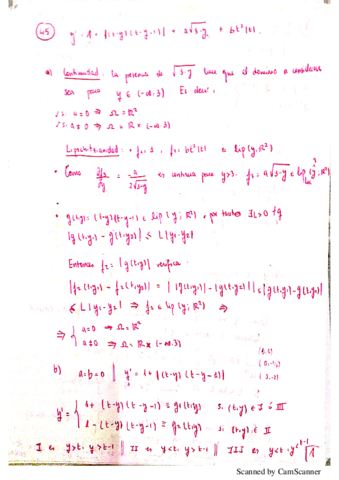 45 y' = 1 + |(t-y)(t-y-1)| + a√3-y + bt²|t|.
a) Continuidad: la presencia de √3-y hace que el dominio a considerar
sea para y ∈ (-∞, 3) Es decir,
si a=0 ⇒ Ω = ℝ²
si a≠0 ⇒ Ω = ℝ × (-∞, 3)
Lipschitzianidad: f₁ = 1, f₄ = bt²|t| ∈ Lip(y, ℝ²)
• Como ∂f₃/∂y = -a/2√3-y es continua para y>3. f₃ = a√3-y ∈ Lip loc (y,
• g(t,y) = (t-y)(t-y-1) ∈ Lip(y; ℝ²), por tanto ∃L>0 /
|g(t,y₁) - g(t,y₂)| ≤ L|y₁-y₂|
Entonces f₂ = |g(t,y)| verifica
|f₂(t,y₁) - f₂(t,y₂)| = ||g(t,y₁)| - |g(t,y₂)|| ≤ |g(t,y₁) - g(t,y₂)|
≤ L|y₁-y₂| ⇒ f₂ ∈ Lip(y, ℝ²) ⇒
⇒ { a=0 ⇒ Ω = ℝ²
a≠0 ⇒ Ω = ℝ × (-∞, 3)
b) a=b=0 | y' = 1 + |(t-y)(t-y-1)|
y' = { 1 + (t-y)(t-y-1) ≡ g₁(t,y) si (t,y) ∈ I ó III
1 - (t-y)(t-y-1) ≡ g₂(t,y) si (t,y) ∈ II
I es y>t, y>t-1 || II es y<t, y>t-1 || III es y<t, y<t-1
Scanned by CamScanner